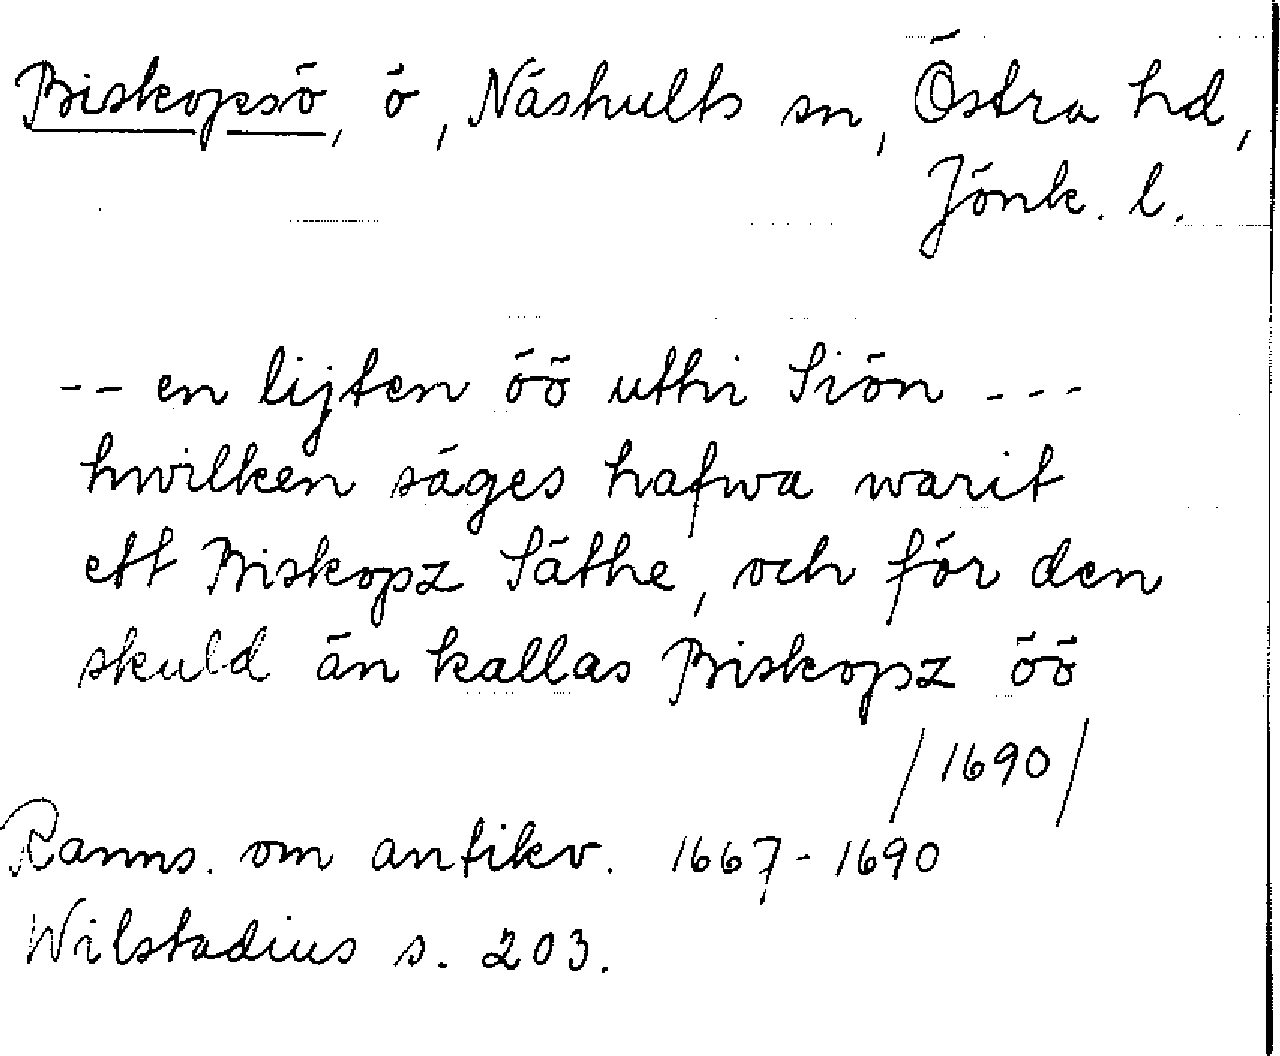 Biskopsö, ö, Näshults sn, Östra hd,
Jönk. l.
-- en lijten öö uthi Siön ---
hwilken säges hafwa warit
ett Biskopz Säthe, och för den
skuld än kallas Biskopz öö
/1690/
Ranns. om antikv. 1667-1690
Wilstadius s. 203.